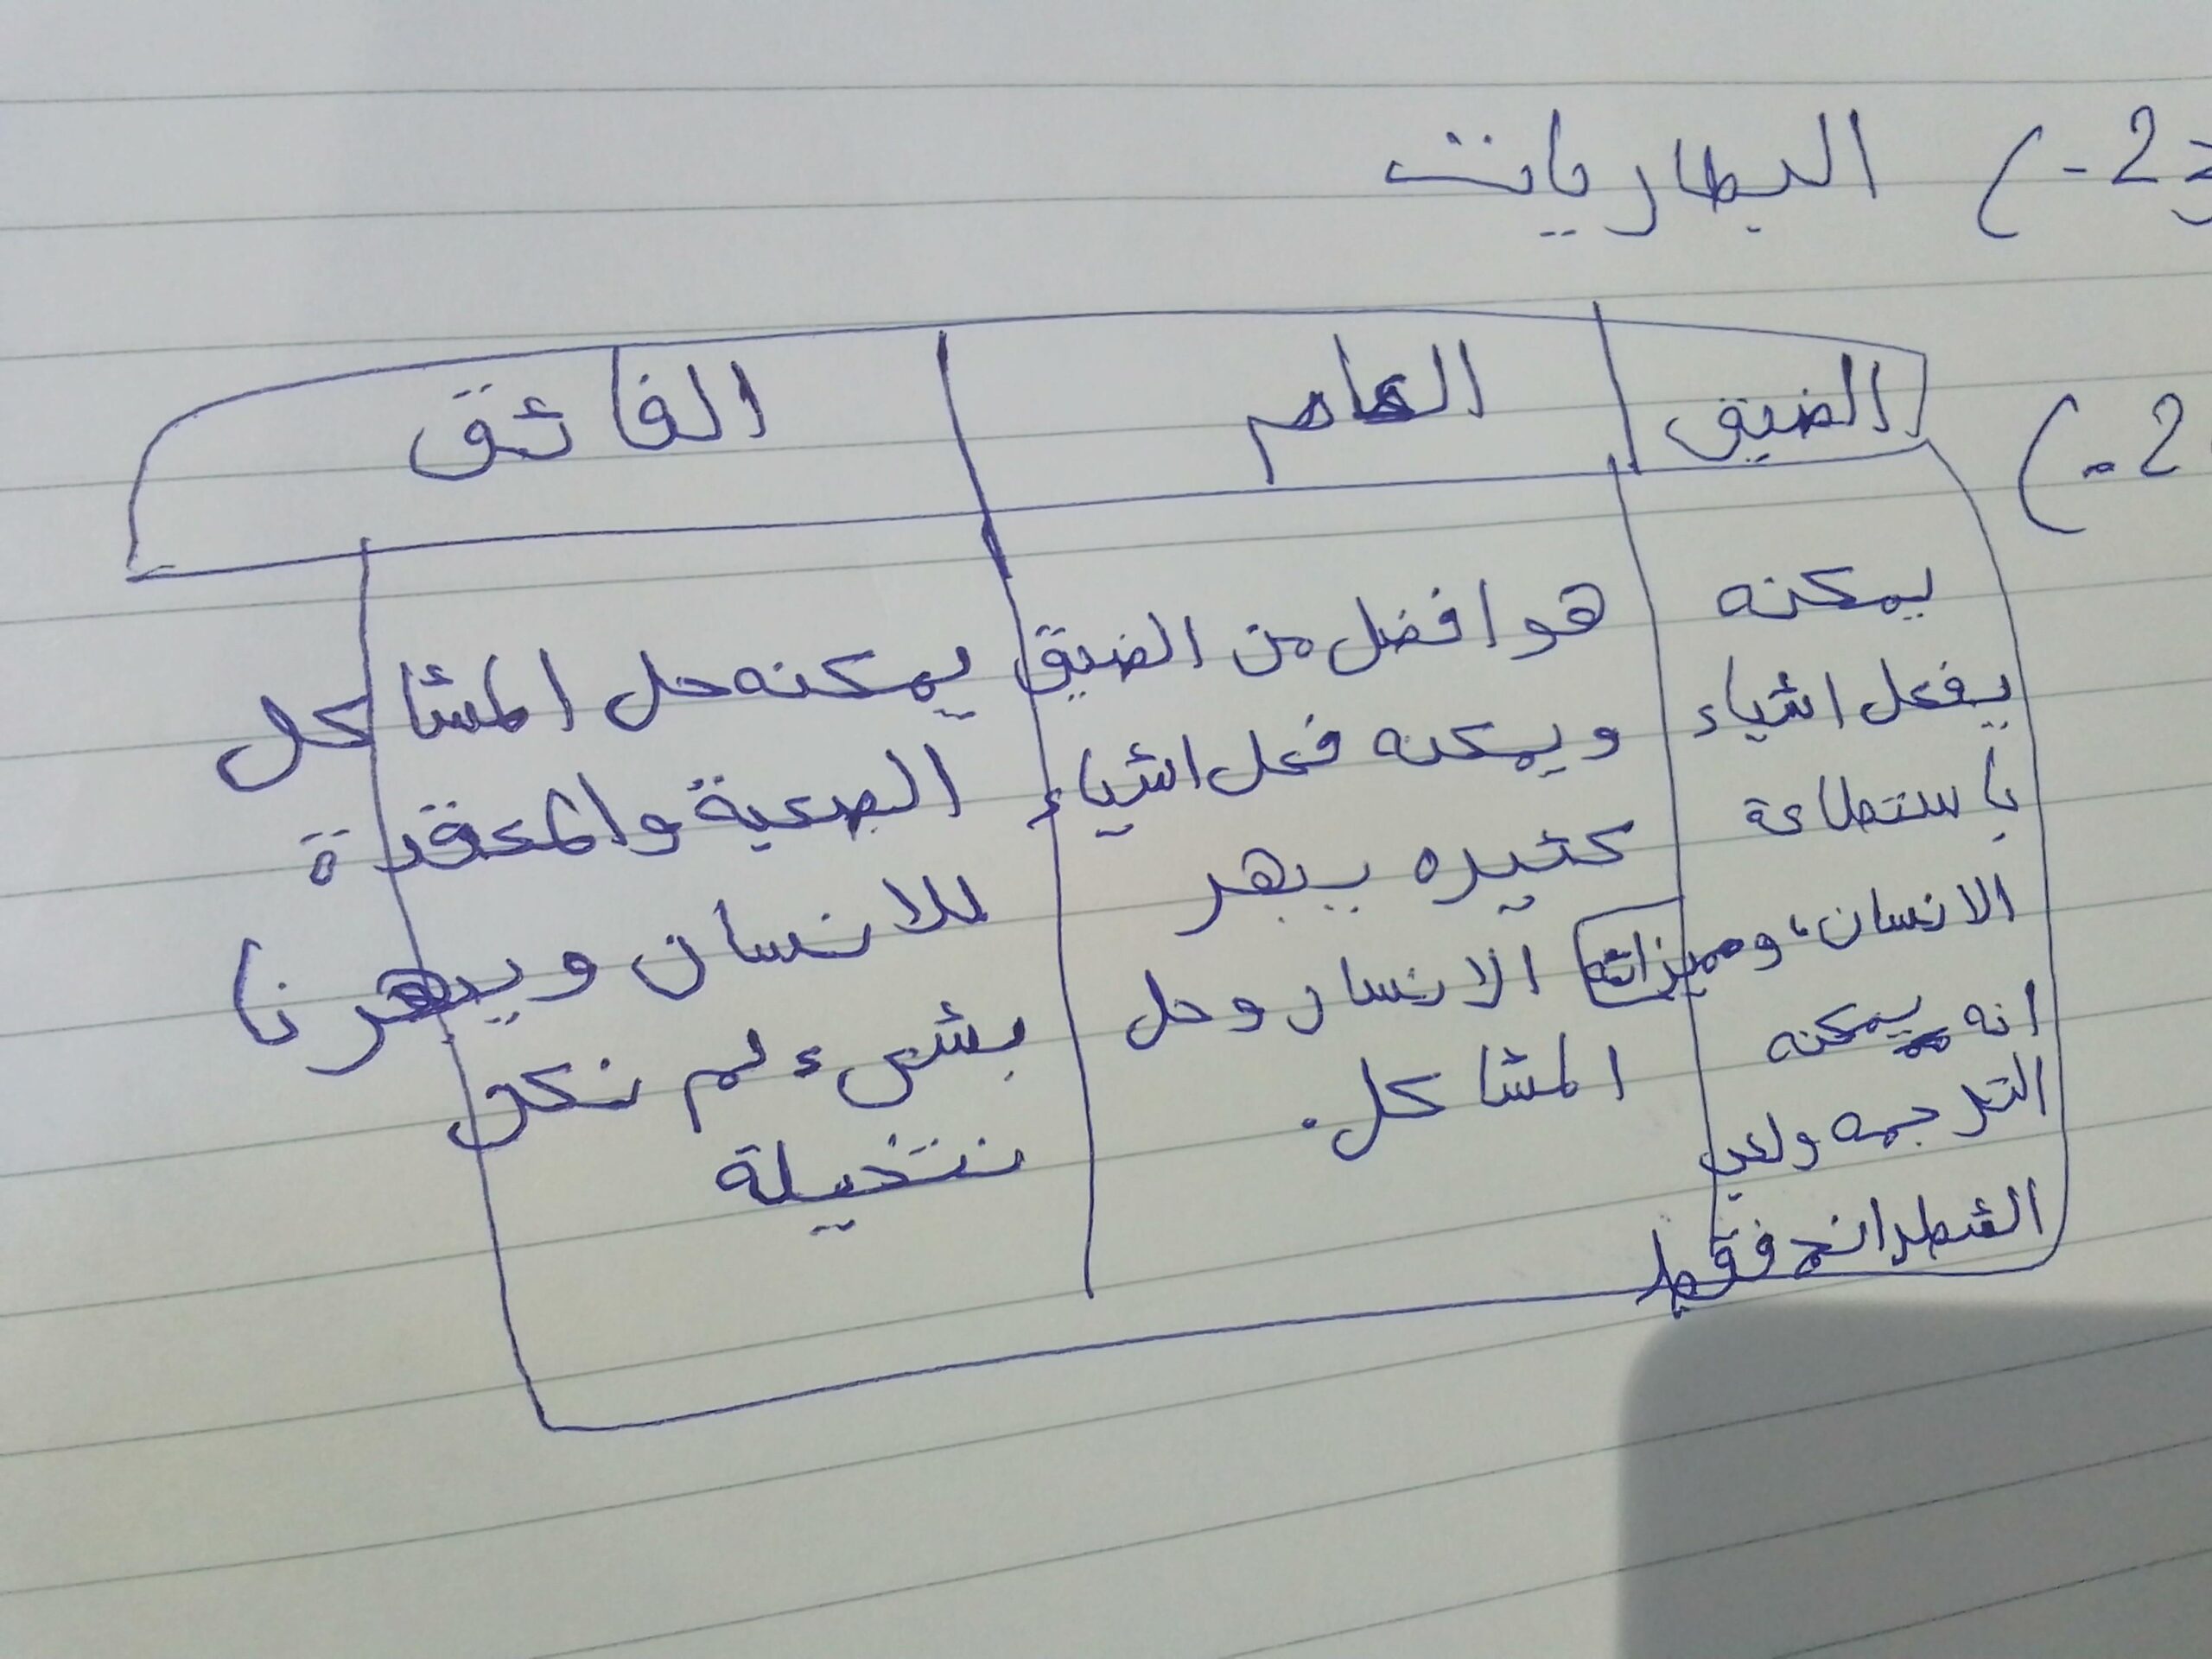 2-) البطاريات
2-)
الضيق
العام
الفائق
يمكنه
يفعل اشياء
باستطاعة
الانسان، ومميزاته
انه يمكنه
الترجمه ولعب
الشطرانج فقط
هو افضل من الضيق
ويمكنه فعل اشياء
كثيره يبهر
الانسان وحل
المشاكل.
يمكنه حل المشاكل
الصعبة والمعقدة
للانسان ويبهرنا
بشيء لم نكن
نتخيلة